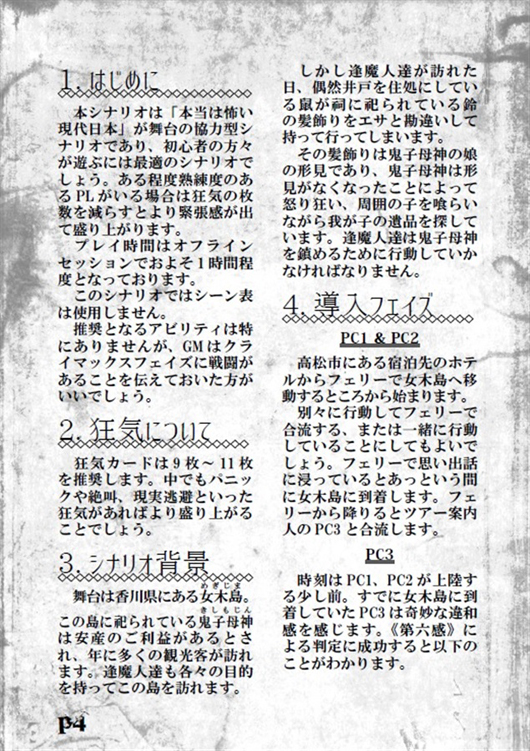 1. はじめに
本シナリオは「本当は怖い
現代日本」が舞台の協力型シ
ナリオであり、初心者の方々
が遊ぶには最適のシナリオで
しょう。ある程度熟練度のあ
るPLがいる場合は狂気の枚
数を減らすとより緊張感が出
て盛り上がります。
プレイ時間はオフライン
セッションでおよそ1時間程
度となっております。
このシナリオではシーン表
は使用しません。
推奨となるアビリティは特
にありませんが、GMはクラ
イマックスフェイズに戦闘が
あることを伝えておいた方が
いいでしょう。
2. 狂気について
狂気カードは9枚～11枚
を推奨します。中でもパニッ
クや絶叫、現実逃避といった
狂気があればより盛り上がる
ことでしょう。
3. シナリオ背景
めぎじま
舞台は香川県にある女木島。
きしもじん
この島に祀られている鬼子母神
は安産のご利益があるとさ
れ、年に多くの観光客が訪れ
ます。逢魔人達も各々の目的
を持ってこの島を訪れます。
しかし逢魔人達が訪れた
日、偶然井戸を住処にしてい
る鼠が祠に祀られている鈴
の髪飾りをエサと勘違いして
持って行ってしまいます。
その髪飾りは鬼子母神の娘
の形見であり、鬼子母神は形
見がなくなったことによって
怒り狂い、周囲の子を喰らい
ながら我が子の遺品を探して
います。逢魔人達は鬼子母神
を鎮めるために行動していか
なければなりません。
4. 導入フェイズ
PC1 & PC2
高松市にある宿泊先のホテ
ルからフェリーで女木島へ移
動するところから始まります。
別々に行動してフェリーで
合流する、または一緒に行動
していることにしてもよいで
しょう。フェリーで思い出話
に浸っているとあっという間
に女木島に到着します。フェ
リーから降りるとツアー案内
人のPC3と合流します。
PC3
時刻はPC1、PC2が上陸す
る少し前。すでに女木島に到
着していたPC3は奇妙な違和
感を感じます。《第六感》に
よる判定に成功すると以下の
ことがわかります。
P4